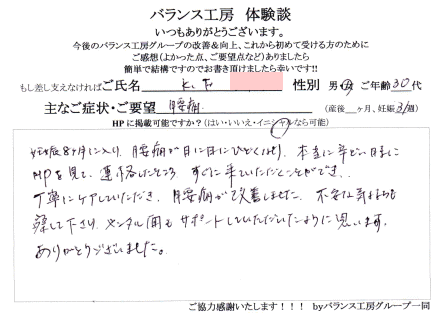 バランス工房 体験談
いつもありがとうございます。
今後のバランス工房グループの改善&向上、これから初めて受ける方のために
ご感想(よかった点、ご要望点など)ありましたら
簡単で結構ですのでお書き頂けましたら幸いです!!
もし差し支えなければご氏名 K.F 性別 男・女 ご年齢 30代
主なご症状・ご要望 腰痛 (産後__ヶ月、妊娠31週)
HPに掲載可能ですか?(はい・いいえ・イニシャルなら可能)
妊娠8ヶ月に入り、腰痛が日に日にひどくなり、本当に辛い日に
HPを見て、連絡したところ すぐに来ていただくことができ、
丁寧にケアしていただき、腰痛が改善しました。不安な気持ちも
察して下さり、メンタル面もサポートしていただいたように思います。
ありがとうございました。
ご協力感謝いたします!!! byバランス工房グループ一同